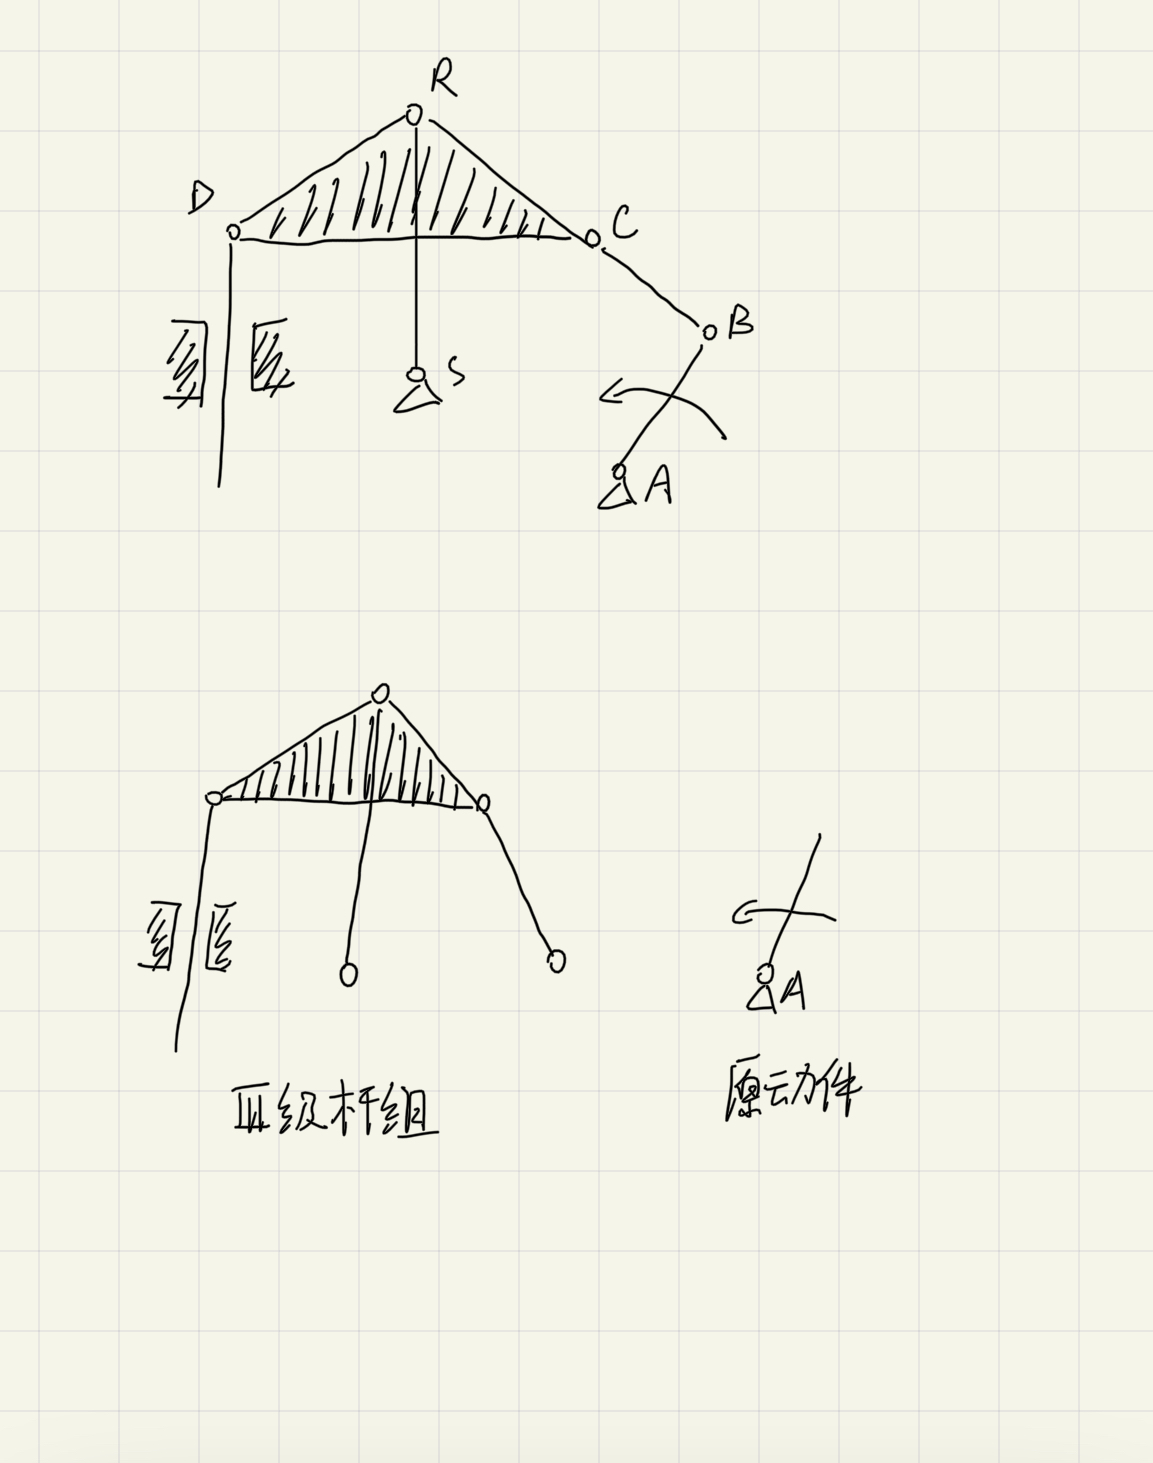 R
D
C
B
S
A
A
Ⅲ级杆组
原动件